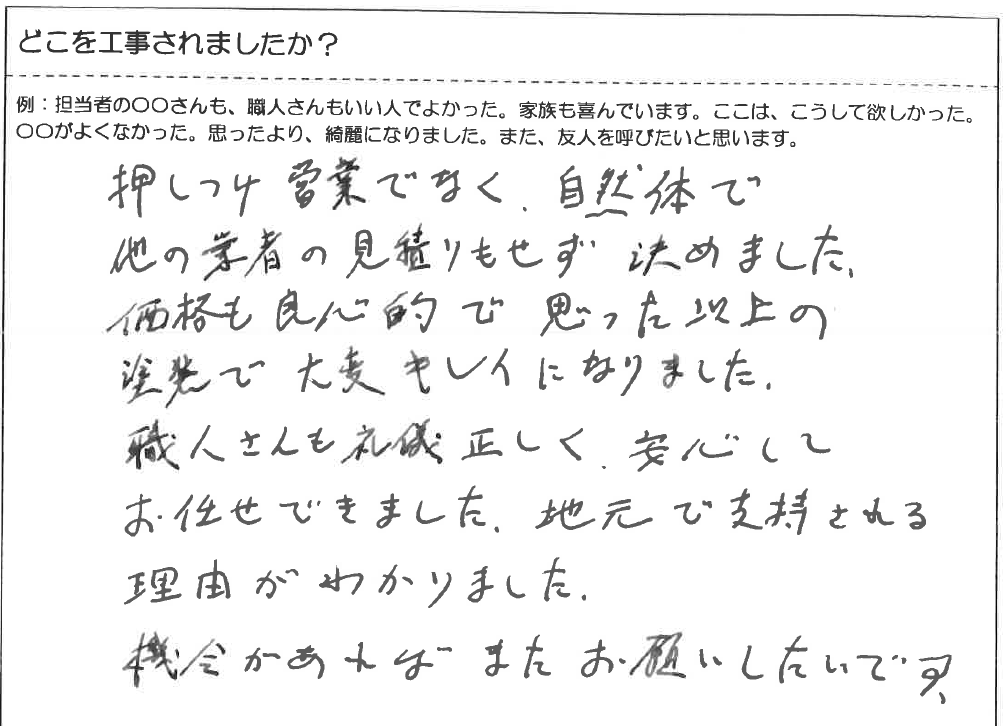 どこを工事されましたか？
例：担当者の〇〇さんも、職人さんもいい人でよかった。家族も喜んでいます。ここは、こうして欲しかった。
〇〇がよくなかった。思ったより、綺麗になりました。また、友人を呼びたいと思います。
押しつけ営業でなく、自然体で
他の業者の見積りもせず 決めました。
価格も良心的で 思った以上の
塗装で 大変キレイになりました。
職人さんも礼儀正しく、安心して
お任せできました。地元で支持される
理由がわかりました。
機会があれば またお願いしたいです。